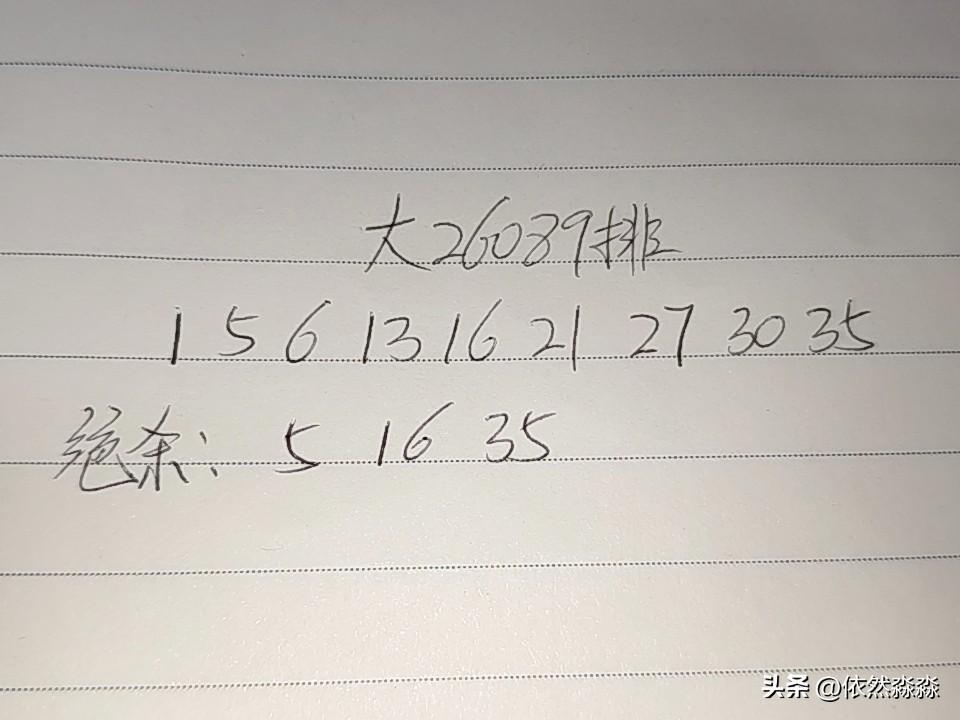 大26089排
1 5 6 13 16 21 27 30 35
绝杀: 5 16 35
头条 @依然淼淼